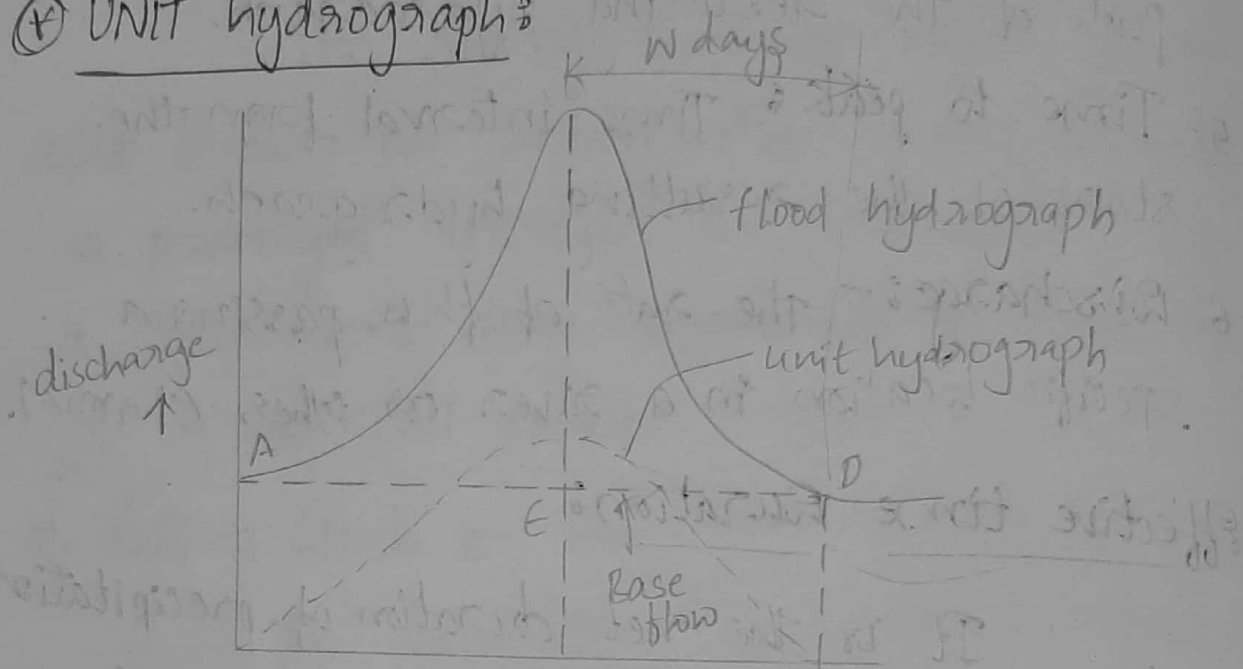 (*) UNIT hydrograph:
N days
K
flood hydrograph
unit hydrograph
discharge
↑
A
D
E
Base
flow